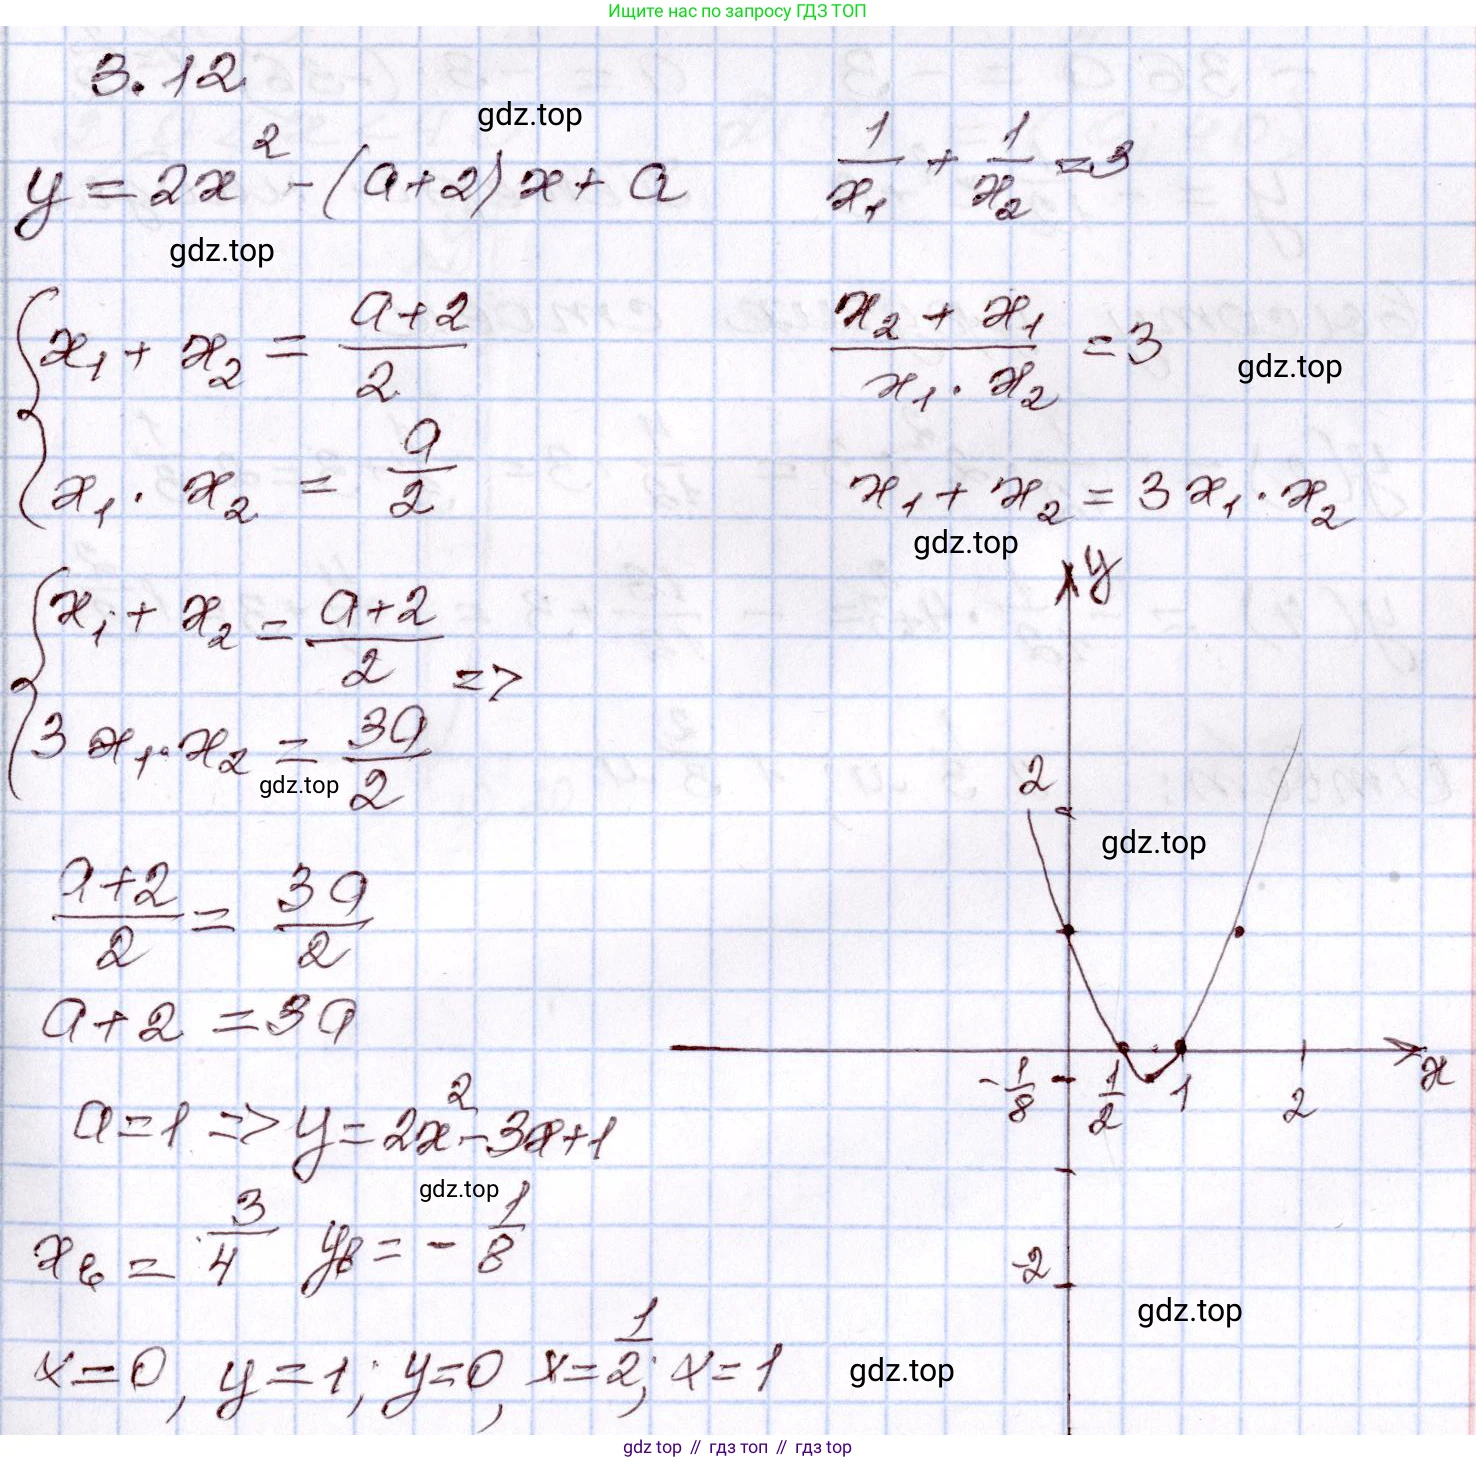 Ищите нас по запросу ГДЗ ТОП
3.12
gdz.top
y = 2x² - (a+2)x + a
1/x₁ + 1/x₂ = 3
gdz.top
{ x₁ + x₂ = (a+2)/2
x₁ · x₂ = a/2
(x₂ + x₁)/(x₁ · x₂) = 3
gdz.top
x₁ + x₂ = 3x₁ · x₂
gdz.top
{ x₁ + x₂ = (a+2)/2
3x₁ · x₂ = 3a/2
=>
gdz.top
(a+2)/2 = 3a/2
a+2 = 3a
a=1 => y = 2x² - 3x + 1
gdz.top
xв = 3/4 yв = - 1/8
x=0, y=1; y=0, x=1/2; x=1
gdz.top
y
2
gdz.top
-1/8
1/2
1
2
x
-2
gdz.top
gdz top // гдз топ // гдз top